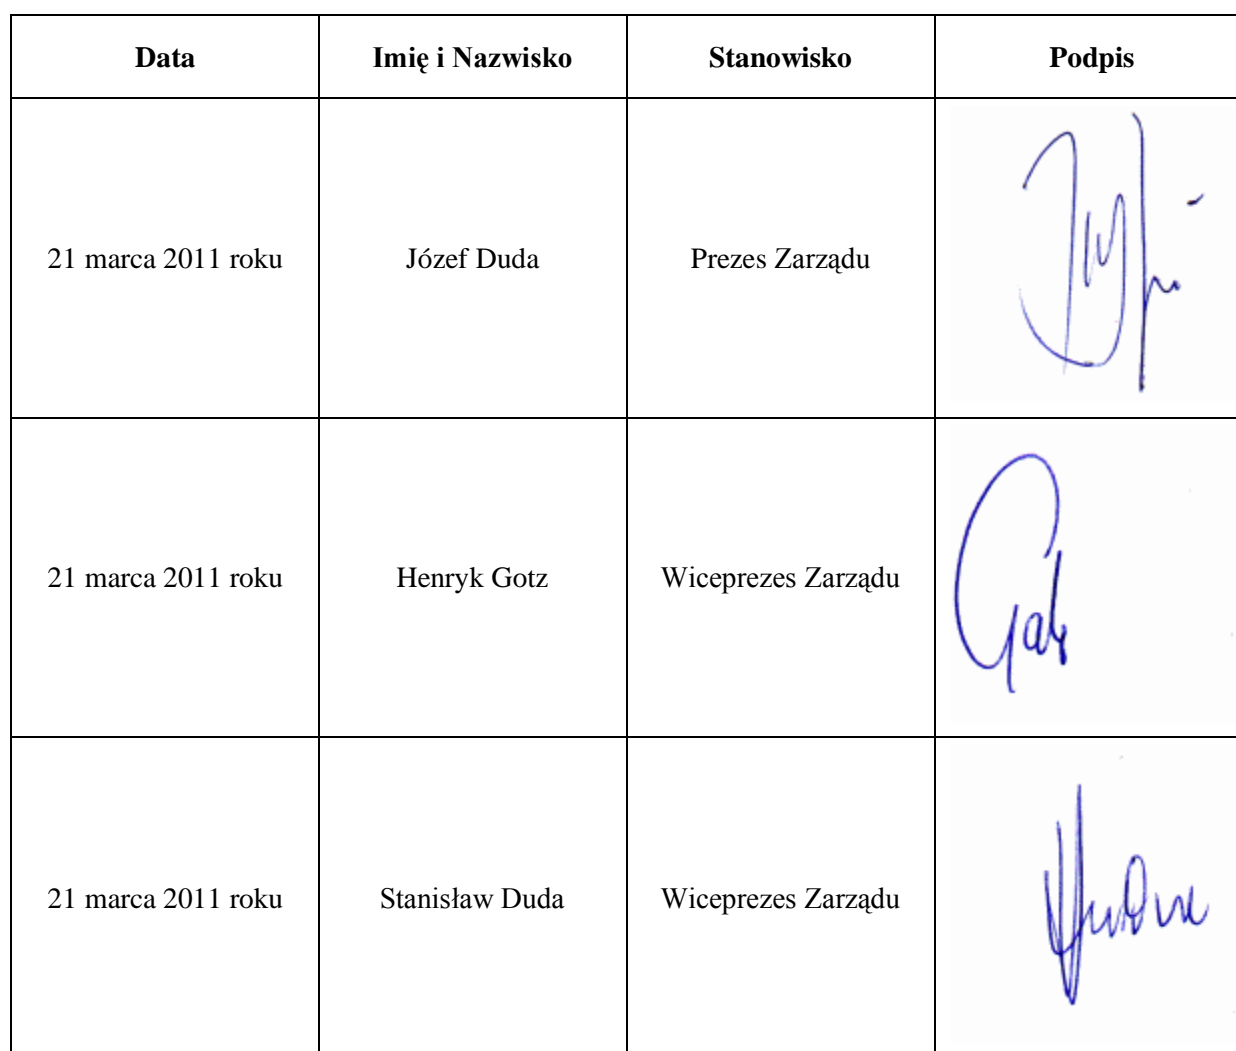 Data Imię i Nazwisko Stanowisko Podpis
21 marca 2011 roku Józef Duda Prezes Zarządu
21 marca 2011 roku Henryk Gotz Wiceprezes Zarządu
21 marca 2011 roku Stanisław Duda Wiceprezes Zarządu